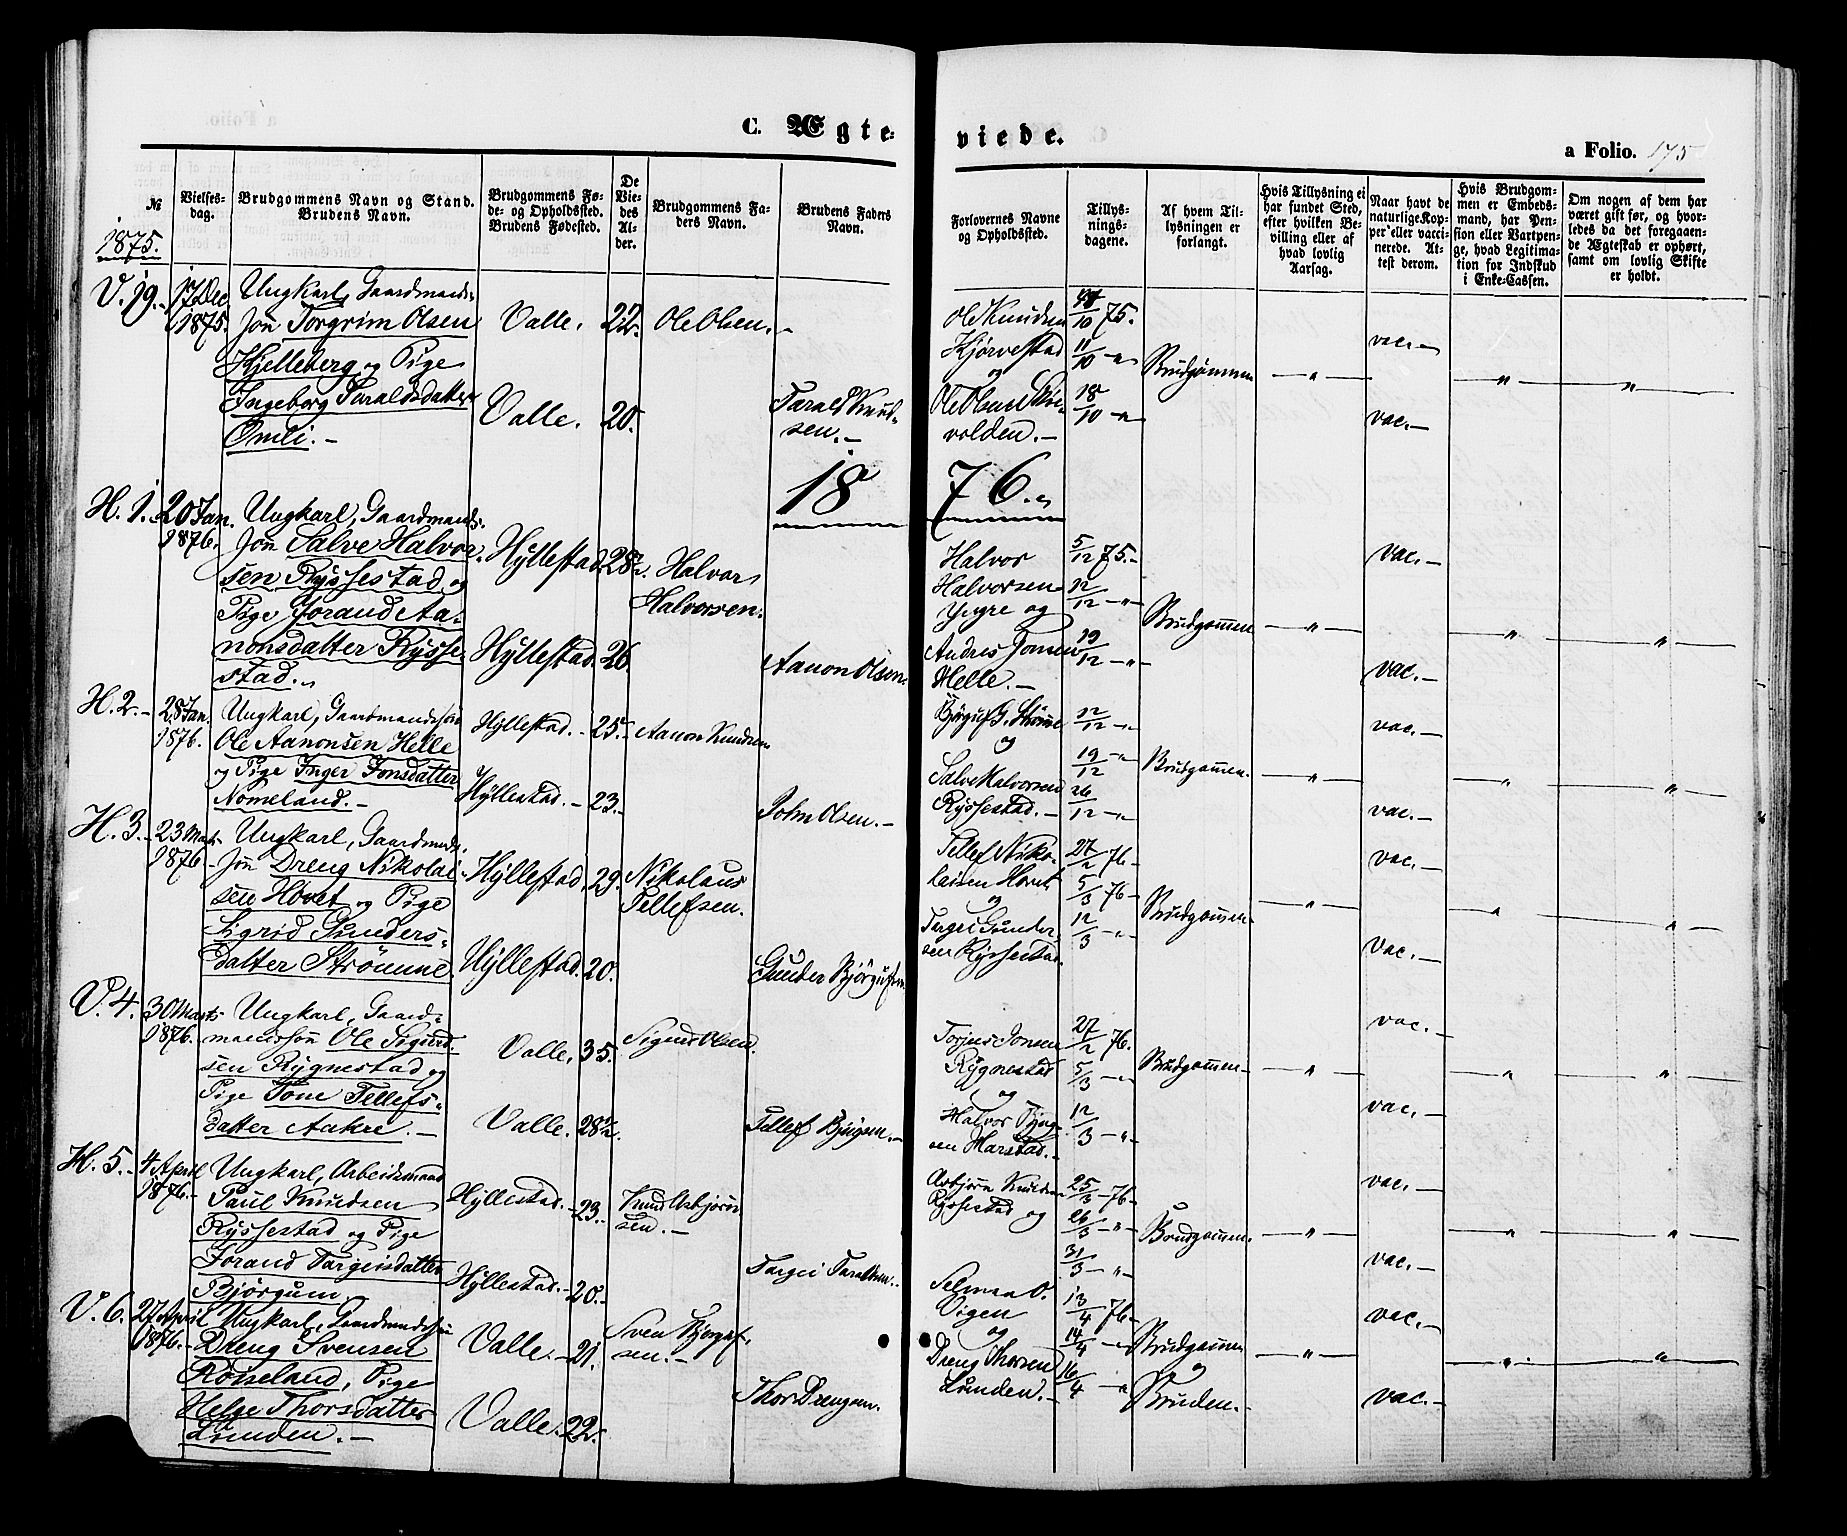 C. Ægte=
viede.
a Folio. 175
№
Vielses=
dag.
Brudgommens Navn og Stand.
Brudens Navn.
Brudgommens Fø=
de= og Opholdssted.
Brudens Fødested.
De
Vie=
des
Al=
der.
Brudgommens Fa=
ders Navn.
Brudens Faders
Navn.
Forlovernes Navne
og Opholdssted.
Tillys=
nings=
dagene.
Af hvem Til=
lysningen er
forlangt.
Hvis Tillysning ei
har fundet Sted,
efter hvilken Be=
villing eller af
hvad lovlig
Aarsag.
Naar havt de
naturlige Kop=
per eller vacci=
nerede. At=
test derom.
Hvis Brudgom=
men er Embeds=
mand, har Pen=
sion eller Vartpen=
ge, hvad Legitima=
tion for Indskud
i Enke=Cassen.
Om nogen af dem har
været gift før, og hvor=
ledes da det foregaaen=
de Ægteskab er ophørt,
samt om lovlig Skifte
er holdt.
1875.
V. 19. 17 Dec. 1875.
Ungkarl, Gaardmands=
søn Torgrim Olsen
Kjelleberg og Pige
Ingeborg Taraldsdatter
Omli.
Valle. 22. Ole Olsen.
Valle. 20. Tarald Knud=
sen.
Ole Knudsen
Kjørvestad
og
Ole Olsen
volden.
10 75.
11/10
18/10
Brudgommen
vac.
vac.
1876.
H. 1. 20 Jan. 1876.
Ungkarl, Gaardmands=
søn Salve Halvor=
sen Ryssestad og
Pige Jorand Aa=
nonsdatter Rysse=
stad.
Hyllestad. 28½. Halvor
Halvorsen.
Hyllestad. 26. Aanon Olsen.
Halvor
Halvorsen
og
Andres Jonsen
Helle.
5/12 75.
12/12
19/12
Brudgommen
vac.
vac.
H. 2. 28 Jan. 1876.
Ungkarl, Gaardmandssøn
Ole Aanonsen Helle
og Pige Inger Jonsdatter
Nomeland.
Hyllestad. 25. Aanon Knudsen
Hyllestad. 23. John Olsen.
Bjøguf G. Strømme
og
Salve Halvorsen
Ryssestad.
12/12
19/12
26/12
Brudgommen.
vac.
vac.
H. 3. 23 Marts 1876.
Ungkarl, Gaardmands=
søn Dreng Nikolai=
sen Hovet og Pige
Sigrid Gunders=
datter Strömme
Hyllestad. 29. Nikolaus
Tellefsen.
Hyllestad. 20. Gunder Bjørgufsen
Tellef Niko=
laisen Hovet
og
Targei Gunder=
sen Ryssestad.
27/2 76.
5/3 76
12/3
Brudgommen
vac.
vac.
V. 4. 30 Marts 1876.
Ungkarl, Gaard=
mandssøn Ole Sigurd=
sen Rygnestad og
Pige Tone Tellefs=
datter Aakre.
Valle. 35. Sigurd Olsen.
Valle. 28½. Tellef
Torjus Jonsen
Rygnestad
og
Halvor Bjørg=
sen Harstad.
27/2 76.
5/3
12/3
Brudgommen
vac.
vac.
H. 5. 4 April 1876.
Ungkarl, Arbeidsmand
Paul Knudsen
Ryssestad og Pige
Jorand Targeisdatter
Bjørgum.
Hyllestad. 23. Knud Asbjørn=
sen.
Hyllestad. 20. Targei Taraldsen.
Asbjørn Knudsen
Ryssestad og
Selman O.
Vigen
25/3 76
26/3
31/3
Brudgommen.
vac.
vac.
V. 6. 27 April 1876.
Ungkarl, Gaardmandssøn
Dreng Svensen
Rosseland, Pige
Helge Thorsdatter
Lunden.
Valle. 21. Sven Bjørguf=
sen.
Valle. 22. Thor Drengsen.
og
Dreng Thorsen
Lunden.
13/4 76.
14/4
16/4
Brudgommen
og
Bruden.
vac.
vac.